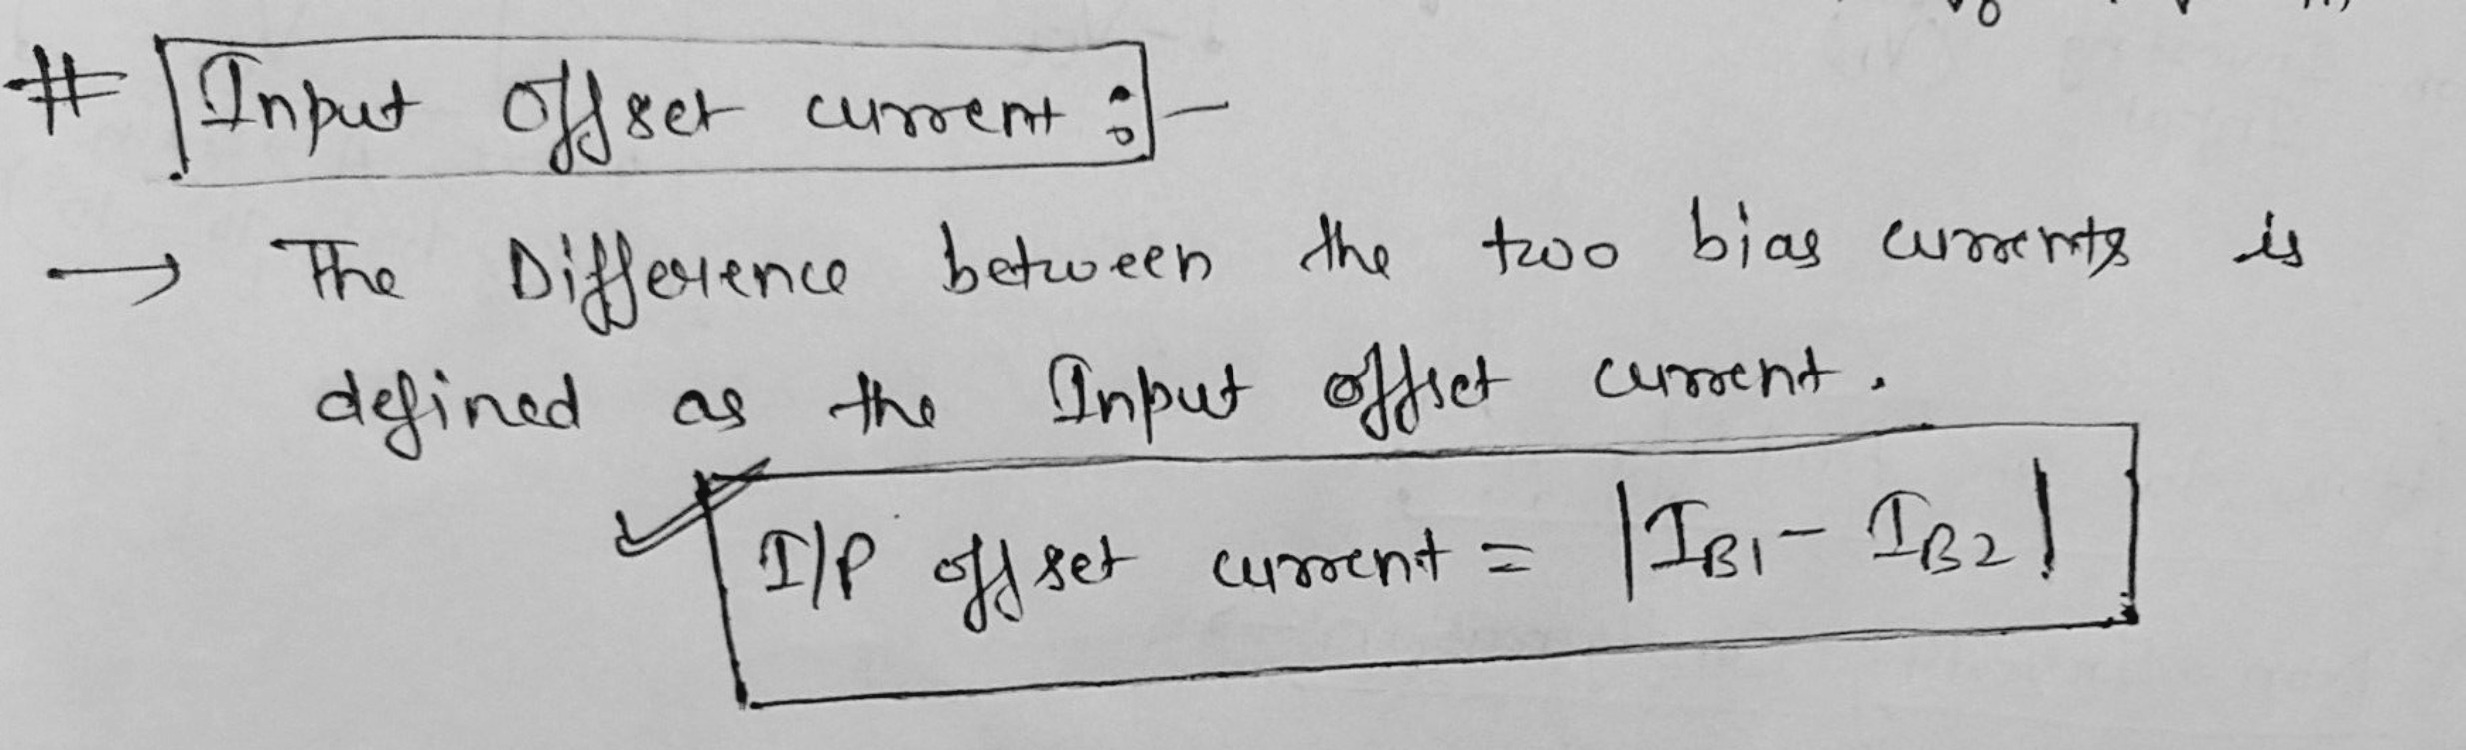 # Input offset current :-
→ The Difference between the two bias currents is
defined as the Input offset current.
I/P offset current = |IB1 - IB2|